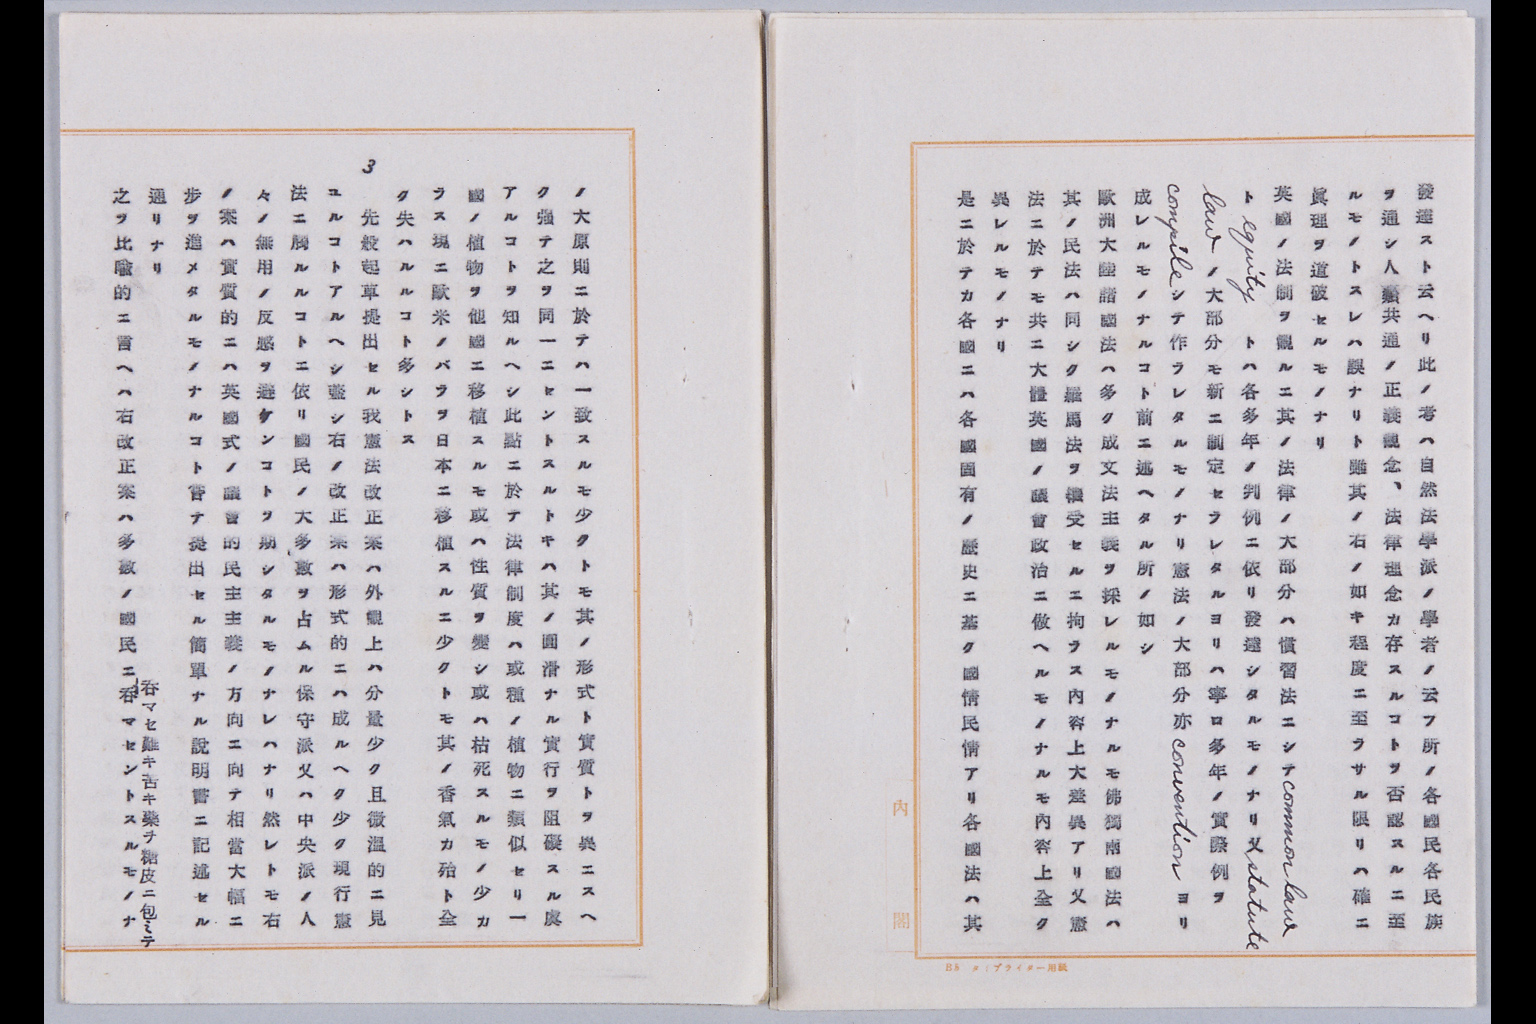 發達スト云ヘリ此ノ考ハ自然法學派ノ學者ノ云フ所ノ各國民各民族
ヲ通シ人類共通ノ正義觀念、法律理念カ存スルコトヲ否認スルニ至
ルモノトスレハ誤ナリト雖其ノ右ノ如キ程度ニ至ラサル限リハ確ニ
眞理ヲ道破セルモノナリ
英國ノ法制ヲ觀ルニ其ノ法律ノ大部分ハ慣習法ニシテcommon law
ト equity トハ各多年ノ判例ニ依リ發達シタルモノナリ又statute
lawノ大部分モ新ニ制定セラレタルヨリハ寧ロ多年ノ實際例ヲ
compileシテ作ラレタルモノナリ憲法ノ大部分亦convention ヨリ
成レルモノナルコト前ニ述ヘタル所ノ如シ
歐洲大陸諸國法ハ多ク成文法主義ヲ採レルモノナルモ佛獨兩國法ハ
其ノ民法ハ同シク羅馬法ヲ繼受セルニ拘ラス內容上大差異アリ又憲
法ニ於テモ共ニ大體英國ノ議會政治ニ倣ヘルモノナルモ內容上全ク
異レルモノナリ
是ニ於テカ各國ニハ各國固有ノ歷史ニ基ク國情民情アリ各國法ハ其
內閣
B5 タイプライター用紙
ノ大原則ニ於テハ一致スルモ少クトモ其ノ形式ト實質トヲ異ニスヘ
ク强テ之ヲ同一ニセントスルトキハ其ノ圓滑ナル實行ヲ阻礙スル虞
アルコトヲ知ルヘシ此點ニ於テ法律制度ハ或種ノ植物ニ類似セリ一
國ノ植物ヲ他國ニ移植スルモ或ハ性質ヲ變シ或ハ枯死スルモノ少カ
ラス現ニ歐米ノバラヲ日本ニ移植スルニ少クトモ其ノ香氣カ殆ト全
ク失ハルルコト多シトス
3
先般起草提出セル我憲法改正案ハ外觀上ハ分量少ク且微溫的ニ見
ユルコトアルヘシ蓋シ右ノ改正案ハ形式的ニハ成ルヘク少ク現行憲
法ニ觸ルルコトニ依リ國民ノ大多數ヲ占ムル保守派又ハ中央派ノ人
々ノ無用ノ反感ヲ避ケンコトヲ期シタルモノナレハナリ然レトモ右
ノ案ハ實質的ニハ英國式ノ議會的民主主義ノ方向ニ向テ相當大幅ニ
步ヲ進メタルモノナルコト嘗テ提出セル簡單ナル說明書ニ記述セル
通リナリ
之ヲ比喩的ニ言ヘハ右改正案ハ多數ノ國民ニ呑マセントスルモノナ
呑マセ難キ苦キ藥ヲ糖皮ニ包ミテ